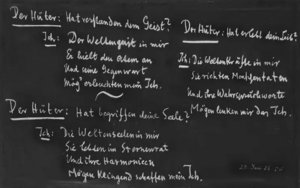 Der Hüter: Hat verstanden dein Geist?
Ich: Der Weltengeist in mir
Er hielt den Atem an
Und seine Gegenwart
Mög' erleuchten mein Ich.
Der Hüter: Hat begriffen deine Seele?
Ich: Die Weltenseelen in mir
Sie lebten im Sternenrat
Und ihre Harmonien
Mögen klingend schaffen mein Ich.
Der Hüter: Hat erlebt dein Leib?
Ich: Die Weltenkräfte in mir
Sie richten Menschentaten
Und ihre Wahrspruchworte
Mögen lenken mir das Ich.